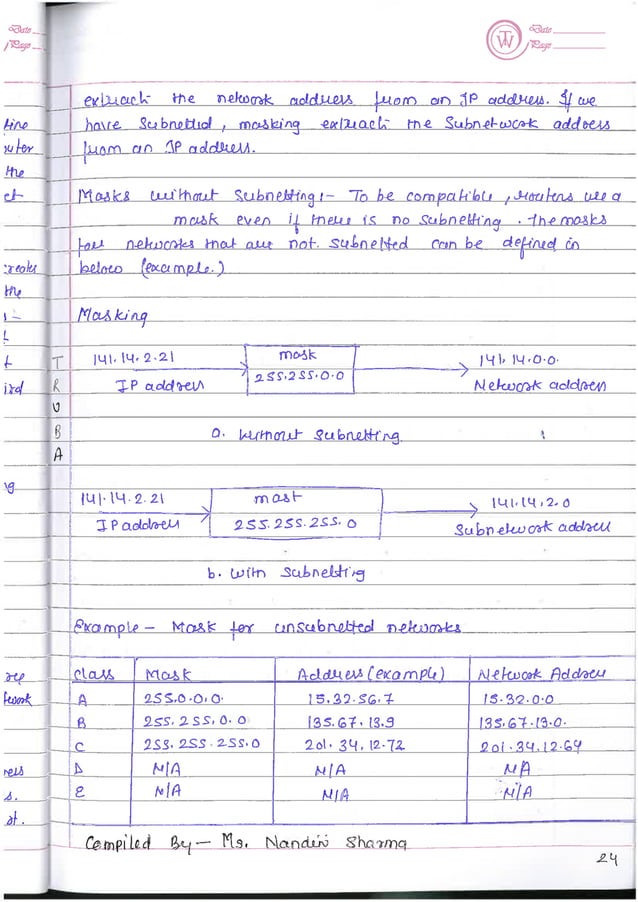 Date
Page
TW
Date
Page
extract the network address from an IP address. If we
have Subnetted, masking extract the Subnetwork address
from an IP address.
Masks without Subnetting:- To be compatible, routers use a
mask even if there is no subnetting. The masks
for networks that are not subnetted can be defined in
below (example.)
Masking
141.14.2.21 mask 141.14.0.0.
IP address 255.255.0.0 Network address
a. Without Subnetting
141.14.2.21 mast 141.14.2.0
IP address 255.255.255.0 Subnetwork address
b. With Subnetting
TRUBA
Example - Mask for unsubnetted networks
Class Mask Address (example) Network Address
A 255.0.0.0. 15.32.56.7 15.32.0.0
B 255.255.0.0 135.67.13.9 135.67.13.0.
C 255.255.255.0 201.34.12.72 201.34.12.64
D N/A N/A N/A
E N/A N/A N/A
Compiled By - Ms. Nandini Sharma
24